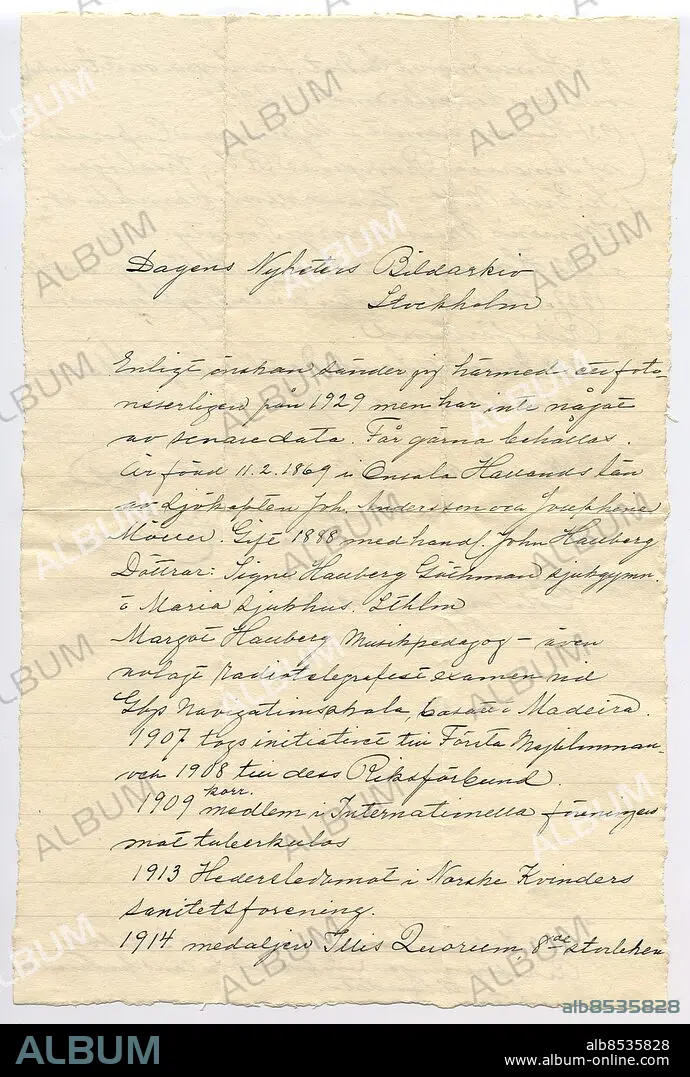 Dagens Nyheters Bildarkiv
Stockholm
Enligt önskan sänder jag härmed ett foto-
från 1929 men har inte något
av senare data. Får gärna behållas.
Är född 11.2.1869 i Onsala Hallands län
av Sjökapten Joh. Andersson och Josephine
Möller. Gift 1888 med handl. John Hauberg
Döttrar: Signe Hauberg Göthman sjukgymn.
å Maria sjukhus. Sthlm
Margot Hauberg Musikpedagog – även
avlagt radiotelegrafistexamen vid
Gbgs Navigationsskola, bosatt i Madeira.
1907 togs initiativet till Första Majblomman
och 1908 till dess Riksförbund.
1909 korr. medlem i Internationella föreningen
mot tuberkulos
1913 Hedersledamot i Norske Kvinders
sanitetsforening.
1914 medaljen Illis Quorum, 8de storleken
ALBUM
alb8535828
ALBUM
alb8535828
www.album-online.com